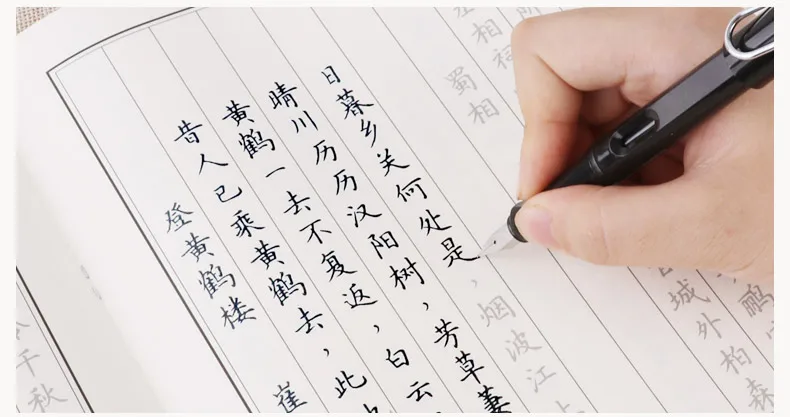 登黄鹤楼 崔
昔人已乘黄鹤去,此
黄鹤一去不复返,白云
晴川历历汉阳树,芳草萋
日暮乡关何处是,烟波江
蜀相
丞相祠
城外柏森
鹂
千秋